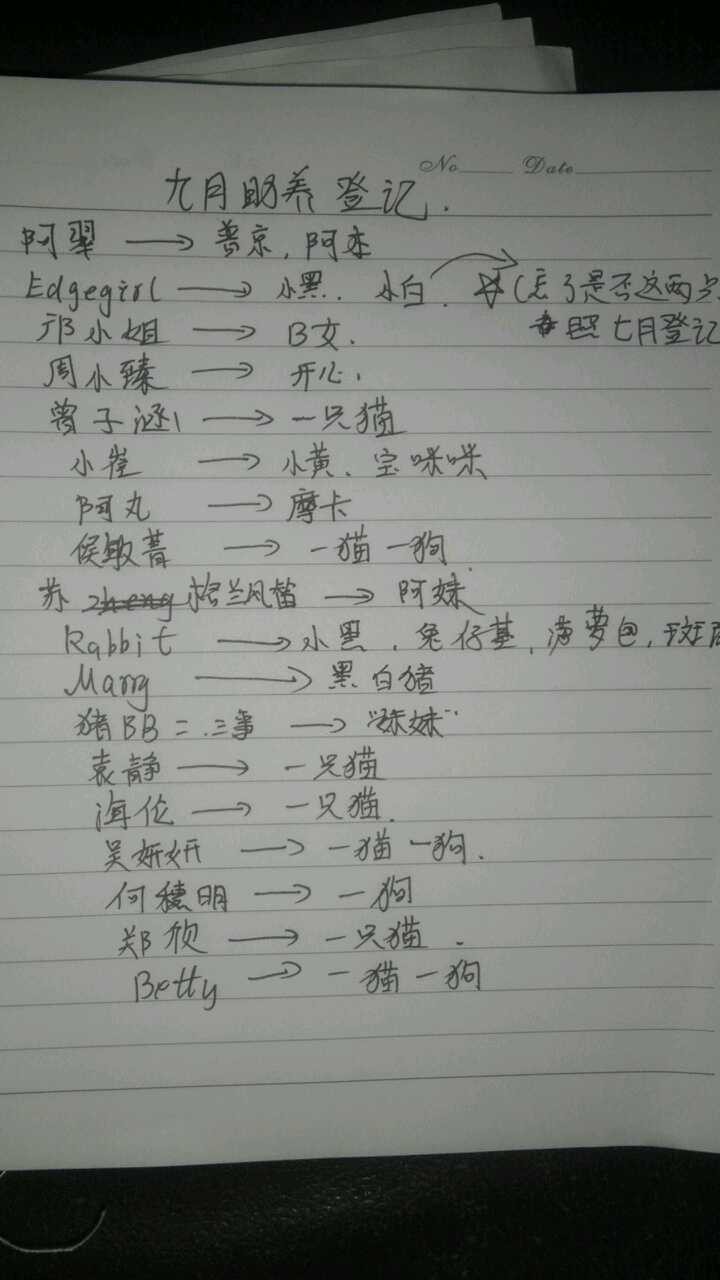 No Date
九月助养登记.
阿翠 → 普京, 阿本
Edgegirl → 小黑. 小白. ☆(忘了是否这两只
照七月登记
邝小姐 → B文.
周小臻 → 开心.
曾子涵 → 一只猫
小崔 → 小黄、宝咪咪
阿丸 → 摩卡
侯敏菁 → 一猫一狗.
苏 格兰风笛 → 阿妹
Rabbit → 小黑, 兔仔基, 菠萝包, 斑
Marry → 黑白猪
猪BB = 三事 → "妹妹"
袁静 → 一只猫
海伦 → 一只猫.
吴妍妍 → 一猫一狗.
何穗明 → 一狗
郑欣 → 一只猫.
Betty → 一猫一狗